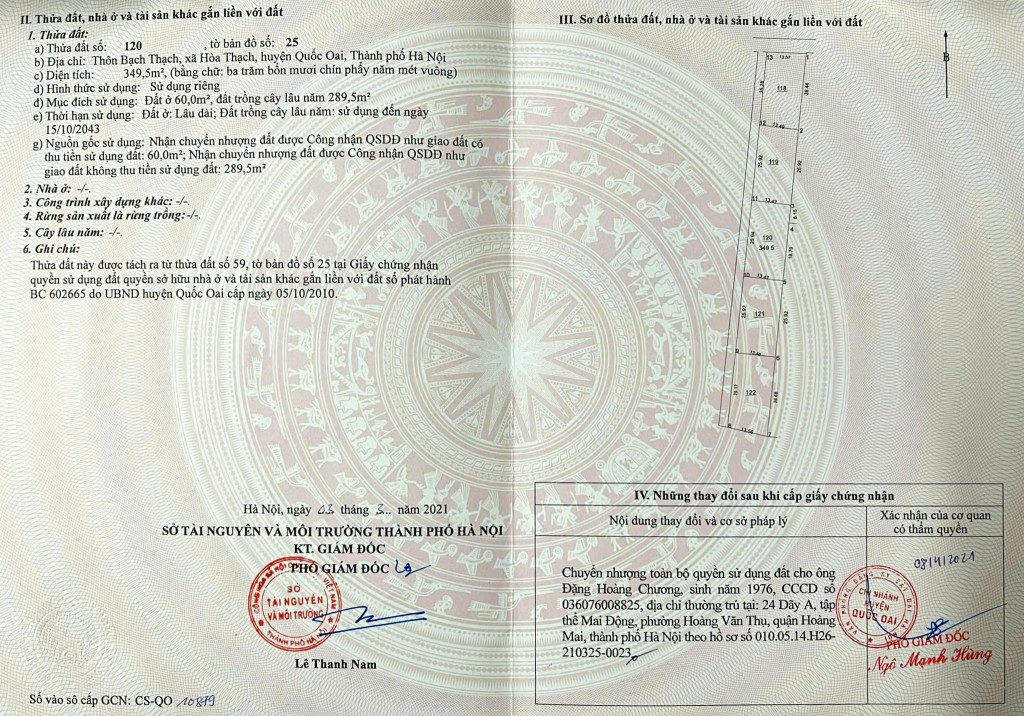 II. Thửa đất, nhà ở và tài sản khác gắn liền với đất
1. Thửa đất:
a) Thửa đất số: 120 , tờ bản đồ số: 25
b) Địa chỉ: Thôn Bạch Thạch, xã Hòa Thạch, huyện Quốc Oai, Thành phố Hà Nội
c) Diện tích: 349,5m², (bằng chữ: ba trăm bốn mươi chín phẩy năm mét vuông)
d) Hình thức sử dụng: Sử dụng riêng
đ) Mục đích sử dụng: Đất ở 60,0m², đất trồng cây lâu năm 289,5m²
e) Thời hạn sử dụng: Đất ở: Lâu dài; Đất trồng cây lâu năm: sử dụng đến ngày
15/10/2043
g) Nguồn gốc sử dụng: Nhận chuyển nhượng đất được Công nhận QSDĐ như giao đất có
thu tiền sử dụng đất: 60,0m²; Nhận chuyển nhượng đất được Công nhận QSDĐ như
giao đất không thu tiền sử dụng đất: 289,5m²
2. Nhà ở: -/-.
3. Công trình xây dựng khác: -/-.
4. Rừng sản xuất là rừng trồng:-/-.
5. Cây lâu năm: -/-.
6. Ghi chú:
Thửa đất này được tách ra từ thửa đất số 59, tờ bản đồ số 25 tại Giấy chứng nhận
quyền sử dụng đất quyền sở hữu nhà ở và tài sản khác gắn liền với đất số phát hành
BC 602665 do UBND huyện Quốc Oai cấp ngày 05/10/2010.
Hà Nội, ngày 03 tháng 3.. năm 2021
SỞ TÀI NGUYÊN VÀ MÔI TRƯỜNG THÀNH PHỐ HÀ NỘI
KT. GIÁM ĐỐC
PHÓ GIÁM ĐỐC
SỞ
TÀI NGUYÊN
VÀ MÔI TRƯỜNG
THÀNH PHỐ HÀ NỘI
Lê Thanh Nam
Số vào sổ cấp GCN: CS-QO 10879
III. Sơ đồ thửa đất, nhà ở và tài sản khác gắn liền với đất
B
13 13.57 1
118
12 13.49 2
25.92 119 25.92
11 13.47 3
6.15
4
120
349.5
10 13.47 5
25.92 121 25.92
9 13.48 6
122
8 13.56 7
IV. Những thay đổi sau khi cấp giấy chứng nhận
Nội dung thay đổi và cơ sở pháp lý
Xác nhận của cơ quan
có thẩm quyền
Chuyển nhượng toàn bộ quyền sử dụng đất cho ông
Đặng Hoàng Chương, sinh năm 1976, CCCD số
036076008825, địa chỉ thường trú tại: 24 Dãy A, tập
thể Mai Động, phường Hoàng Văn Thụ, quận Hoàng
Mai, thành phố Hà Nội theo hồ sơ số 010.05.14.H26-
210325-0023
08/4/2021
CHI NHÁNH
HUYỆN
QUỐC OAI
PHÓ GIÁM ĐỐC
Ngô Mạnh Hùng